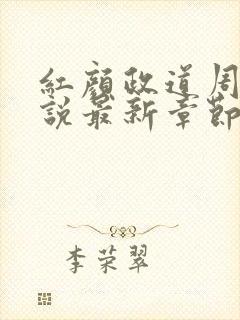 紅顏政道周
說最新章節
李荣翠